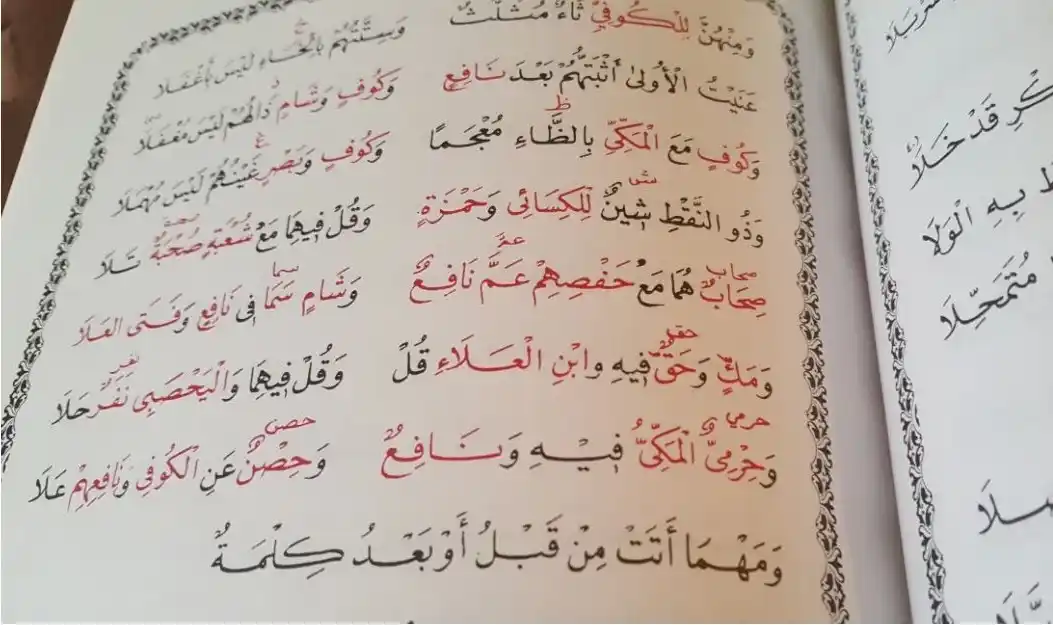 وَمِنْهُنَّ لِلْكُوفِيِّ ثَاءٌ مُثَلَّثٌ وَسِتَّتُهُمْ بِالْخَاءِ لَيْسَ بِأَغْفَلَا
عَنَيْتُ الْأُولَى أَثْبَتُّهُمْ بَعْدَ نَافِعٍ وَكُوفٍ وَشَامٍ ذَالُهُمْ لَيْسَ مُغْفَلَا
وَكُوفٍ مَعَ الْمَكِّيِّ بِالظَّاءِ مُعْجَمًا وَكُوفٍ وَبَصْرٍ غَيْنُهُمْ لَيْسَ مُهْمَلَا
وَذُو النَّقْطِ شِينٌ لِلْكِسَائِى وَحَمْزَةٍ وَقُلْ فِيهِمَا مَعْ شُعْبَةٍ صُحْبَةٌ تَلَا
صِحَابٌ هُمَا مَعْ حَفْصِهِمْ عَمَّ نَافِعٌ وَشَامٍ سَمَا فِى نَافِعٍ وَفَتَى الْعَلَا
وَمَكٍّ وَحَقٌّ فِيهِ وابْنِ الْعَلَاءِ قُلْ وَقُلْ فِيهِمَا وَالْيَحْصَبِى نَفَرٌ حَلَا
وَحِرْمِىٌّ الْمَكِّىُّ فِيهِ وَنَافِعٌ وَحِصْنٌ عَنِ الْكُوفِى وَنَافِعِهِمْ عَلَا
وَمَهْمَا أَتَتْ مِنْ قَبْلُ أَوْ بَعْدُ كِلْمَةٌ